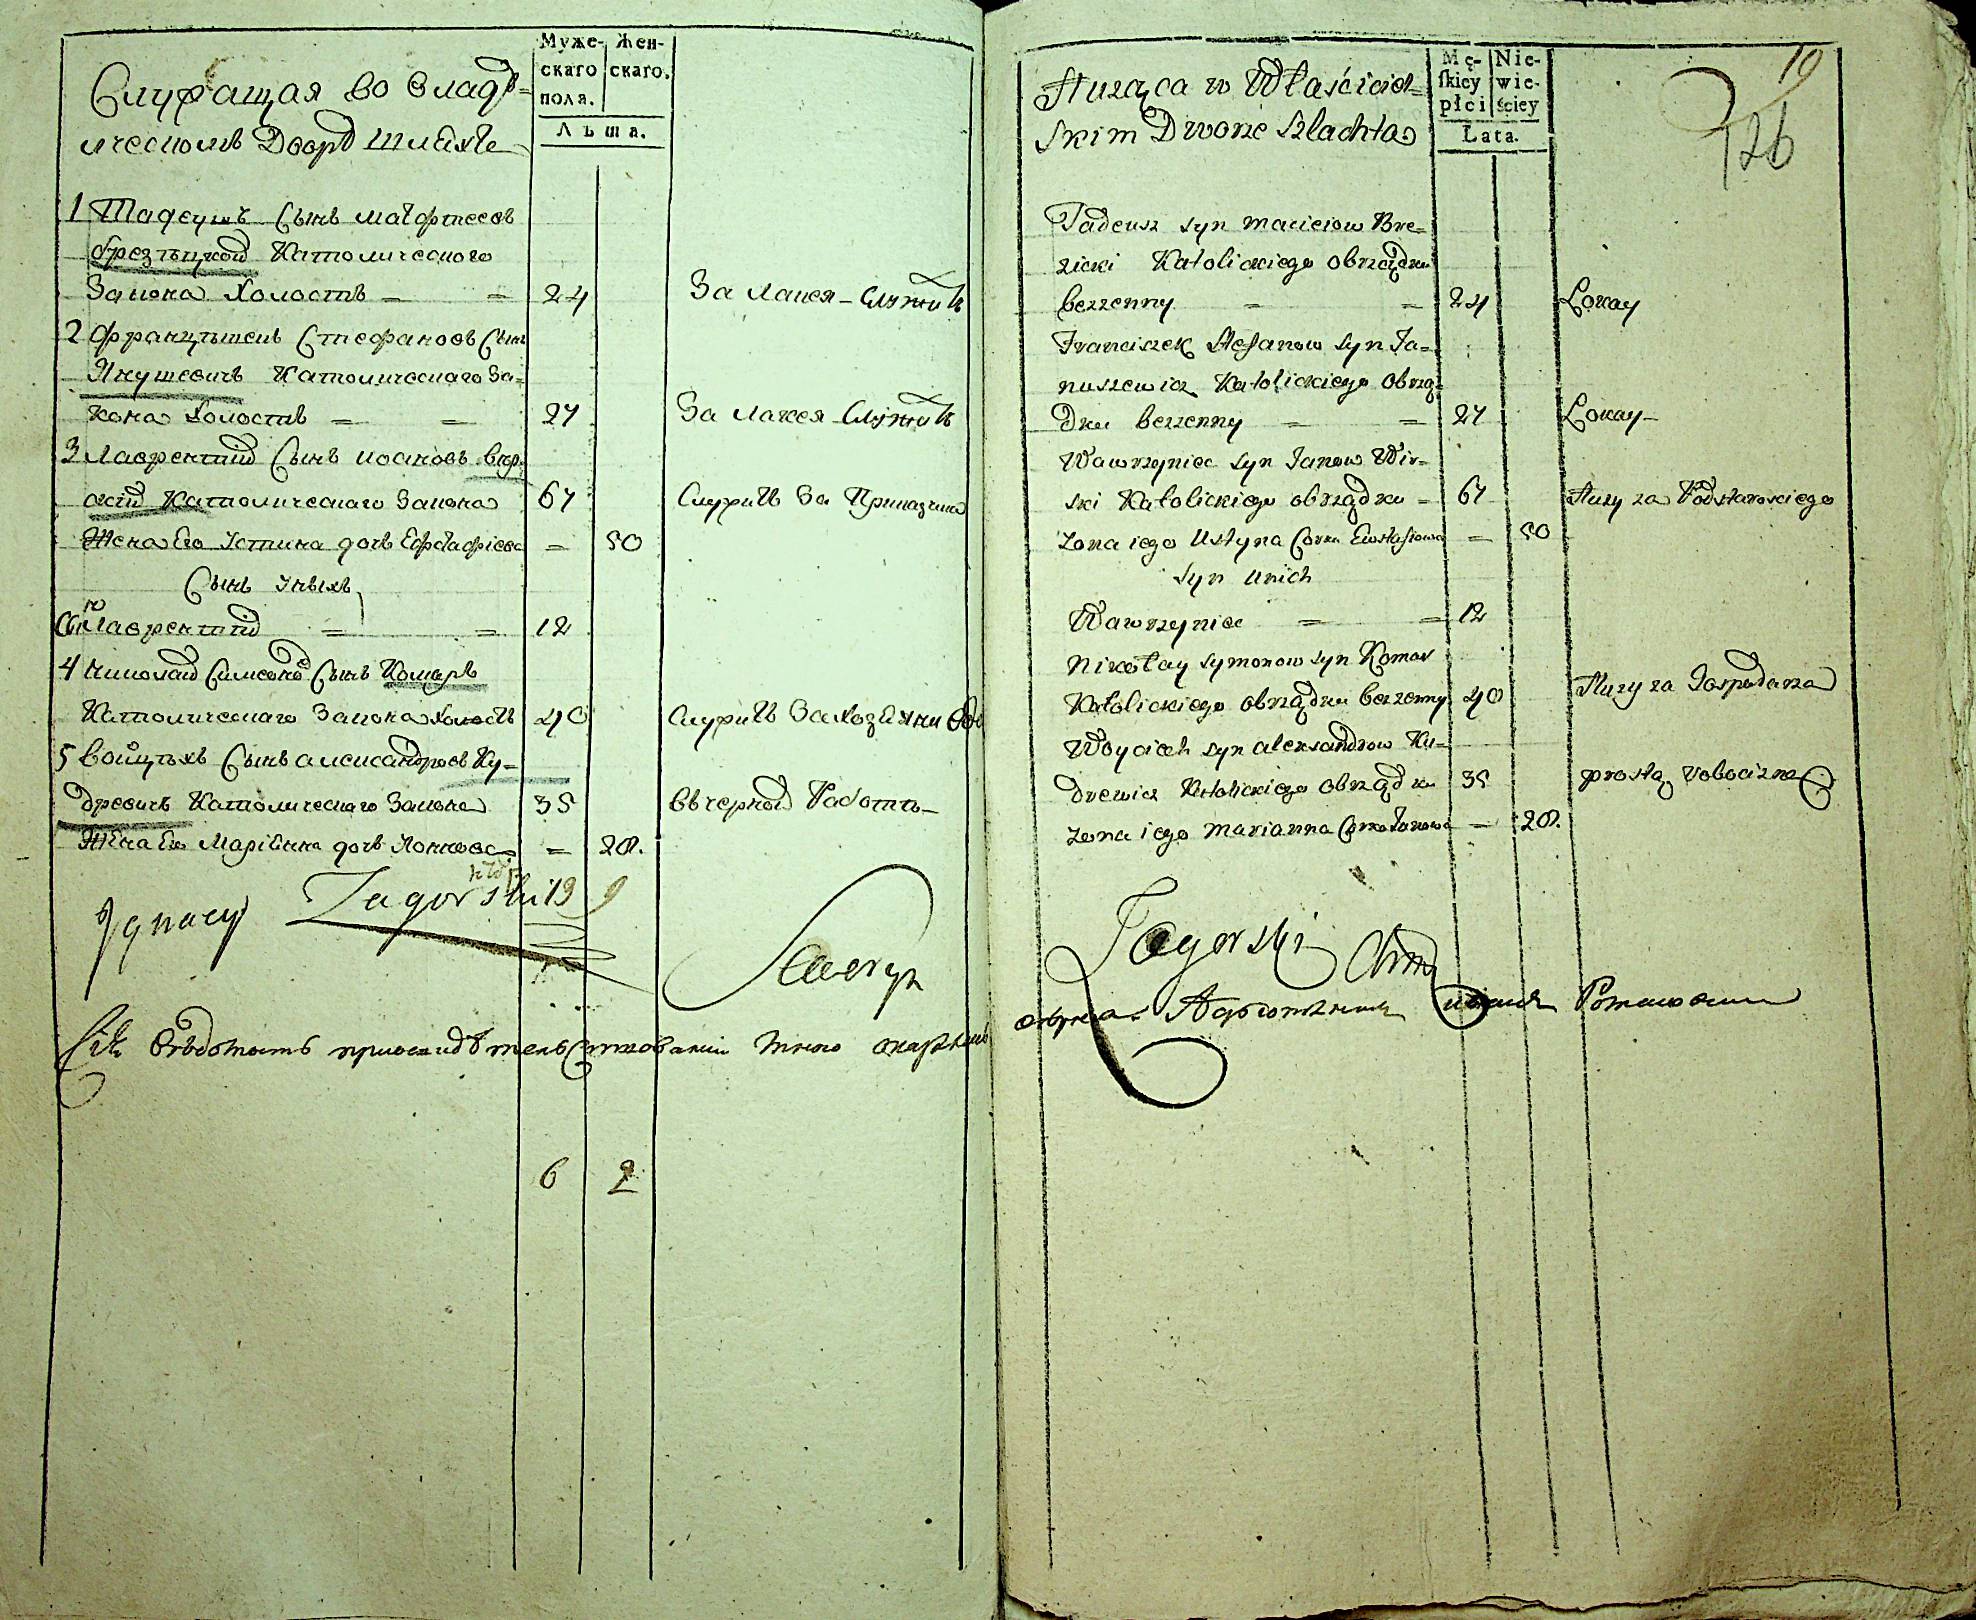 Муже-
скаго
пола.
Жен-
скаго.
Лѣта.
Служащая во Владѣ-
лческомъ Дворѣ Шляхте
1 Тадеушъ Сынъ Матфеевъ
Брезѣцкой Католическаго
Закона Холостъ — = 24 За Лакея - Служитъ
2 Францышекъ Стефановъ Сынъ
Янушевичъ Католическаго За-
кона Холостъ = = 27 За Лакея - Служитъ
3 Лаврентий Сынъ Иоановъ Вир-
ский Католическаго Закона 67 Служитъ За Приказчика
Жена Его Устина дочь Евстафиева = 50
Сынъ Ихъ
Лаврентий = = 12
4 Николай Симеоновъ Сынъ Комаръ
Католическаго Закона Холостъ 40 Служитъ За
5 Войцѣхъ Сынъ Александровъ Ку-
древичъ Католическаго Закона 35 В черной Работѣ
Жена Его Марианна дочь = 20.
Ignacy Zagorski
Сию Ведомость
6 2
Mę-
skiey
płci
Nie-
wie-
ściey
Lata.
19
126
Służąca w Właściciel=
skim Dworze Szlachta
Tadeusz syn Macieiow Bre=
zicki Katolickiego obrządku
bezzenny = = 24 Lokay
Franciszek Stefanow syn Ja=
nuszewicz Katolickiego obrzą=
dku bezzenny = = 27 Lokay
Wawrzyniec syn Janow Wir=
ski Katolickiego obrządku = 67 Służy za Podstarosciego
zona iego Ustyna Corka Ewstafiowa = 50
syn unich
Wawrzyniec = = 12
Nikołay symonow syn Komar
Katolickiego obrządku bezzenny 40 Służy za Gospodarza
Woyciech syn alexandrow Ku-
drewicz Katolickiego obrządku 35 prostą robocizną
zona iego Marianna Corka Janowa — 20.
Zagorski